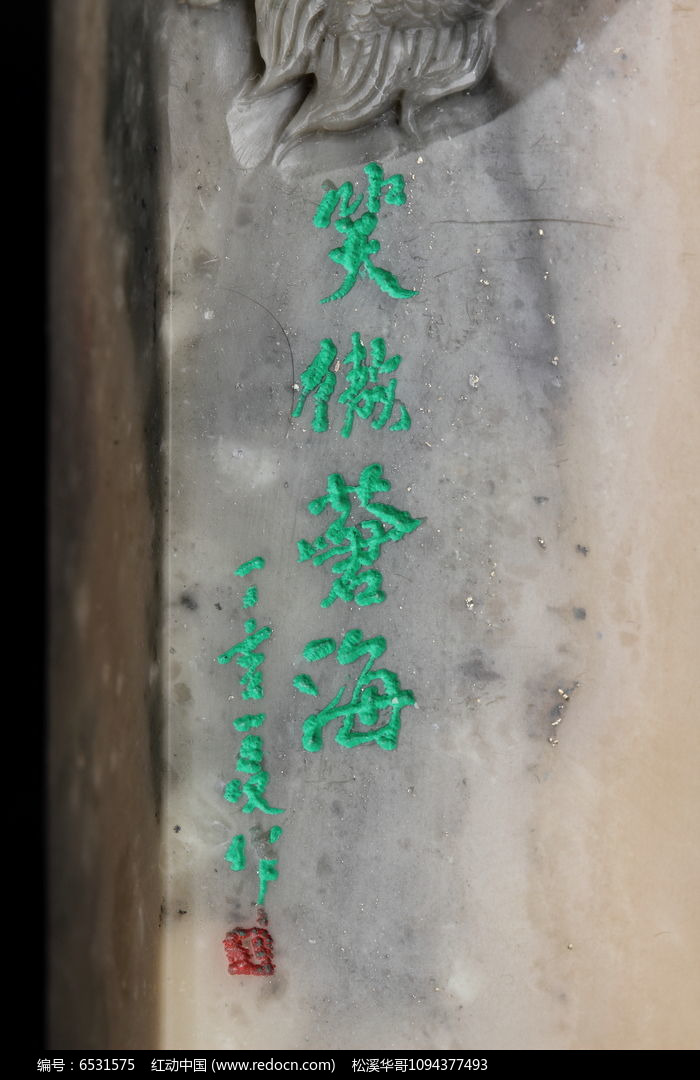 笑傲蒼海
夏作
编号：6531575 红动中国 (www.redocn.com) 松溪华哥1094377493